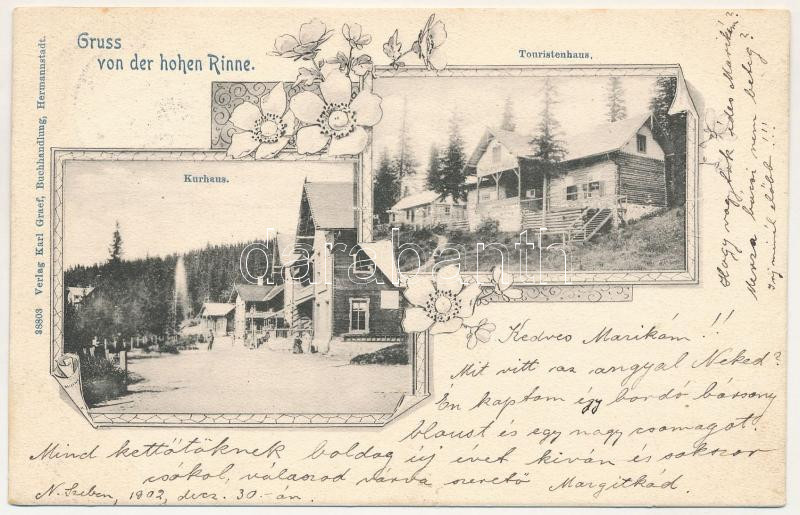 Gruss
von der hohen Rinne.
Touristenhaus.
Kurhaus.
38803 Verlag Karl Graef, Buchhandlung, Hermannstadt.
darabanth
Hogy vagytok édes Marikám?
Mersza bácsi nem beteg?
Irj minél előbb!!!
Kedves Marikám!!
Mit vitt az angyal Neked?
Én kaptam égy bordó bársony
blaust és egy nagy csomagot.
Mind kettőtöknek boldog új évet kiván és sokszor
csókol, válaszod várva szerető Margitkád.
N. Szeben, 1902, decz. 30.-án.